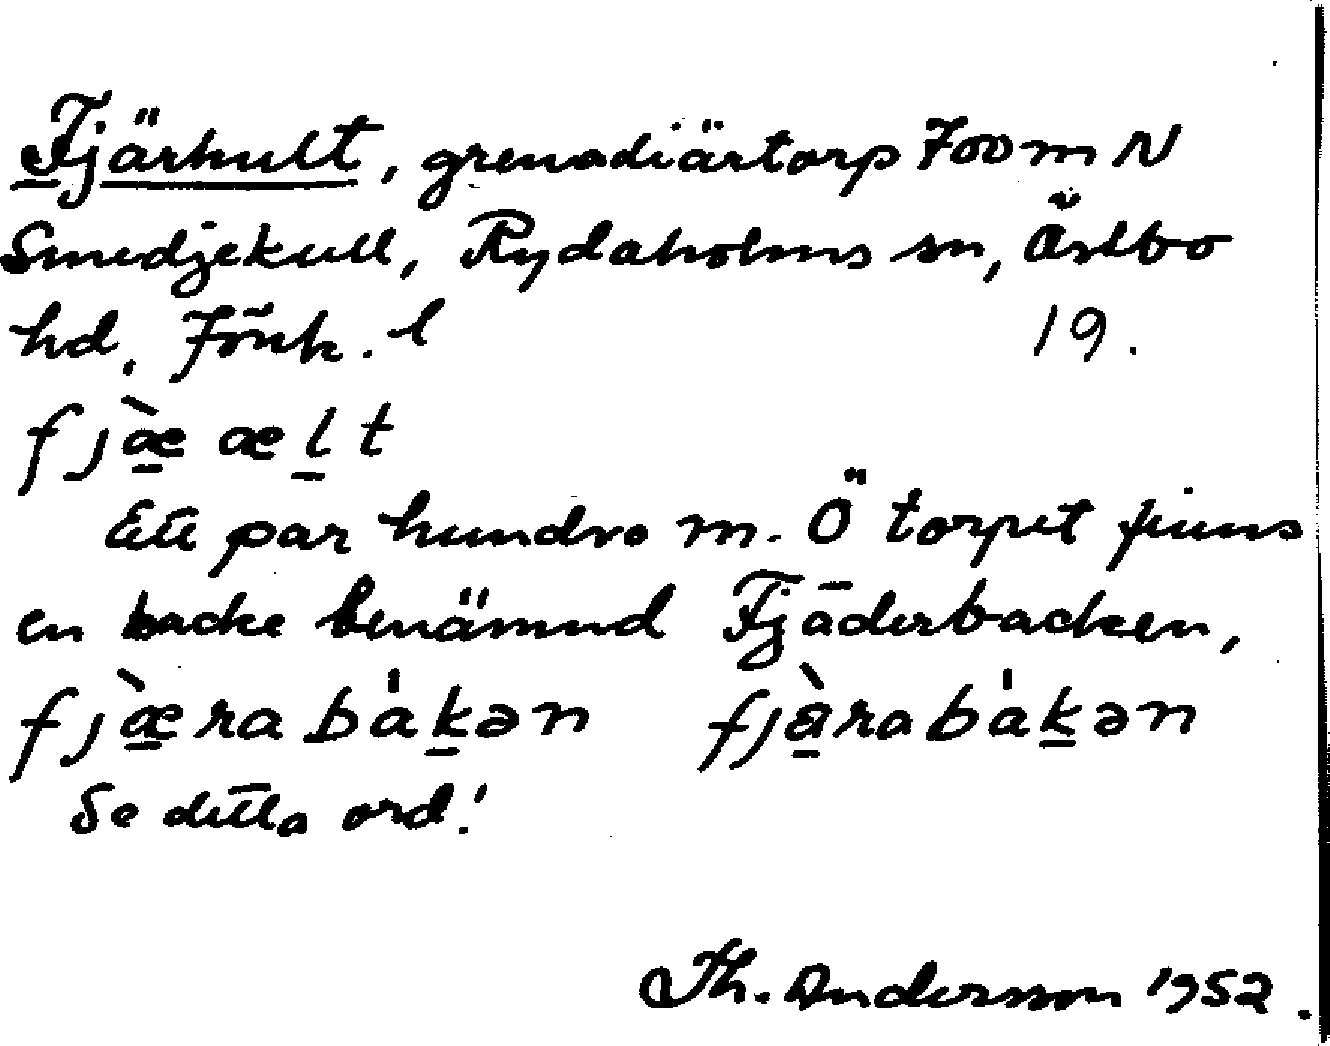 Fjärhult, grenadiärtorp 700 m N
Smedjekull, Rydaholms sn, Östbo
hd, Jönk. l 19.
fjæ̀ ælt
Ett par hundra m. Ö torpet finns
en backe benämnd Fjäderbacken,
fjæ̀ra bákən fjàra bákən
Se detta ord!
Th. Andersson 1952.